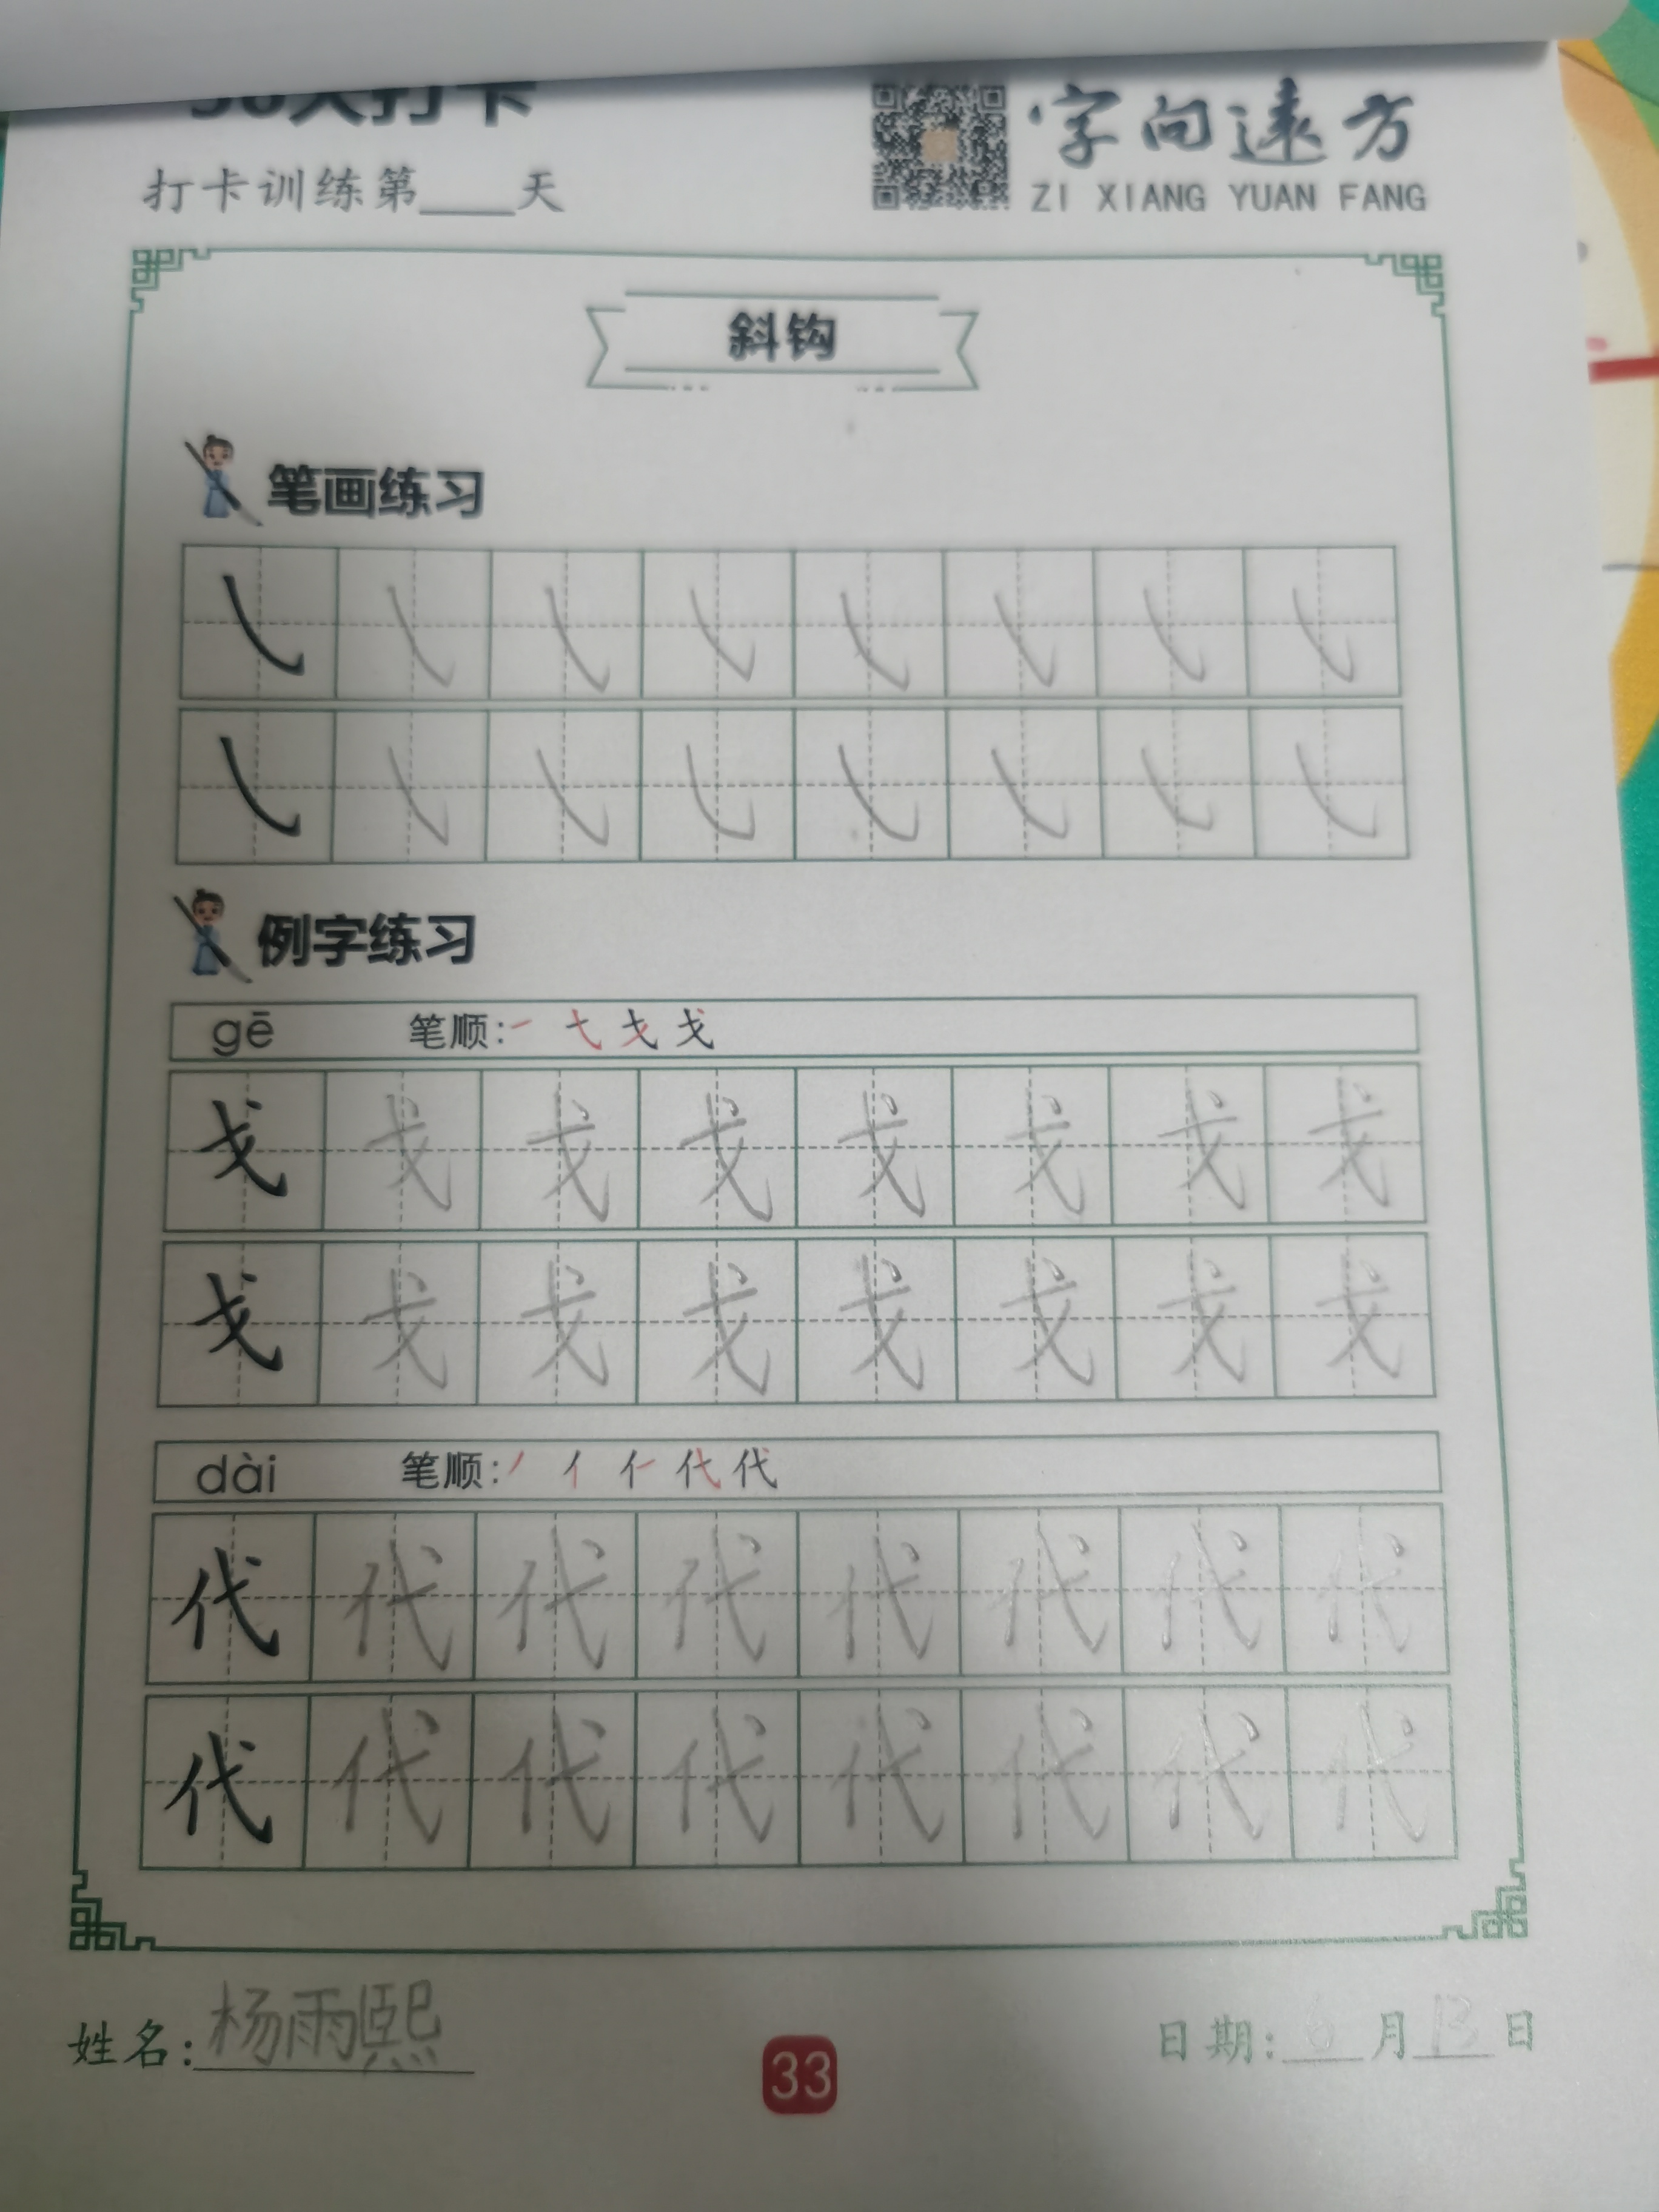 天打卡
字向远方
打卡训练第____天
ZI XIANG YUAN FANG
斜钩
笔画练习
㇂ ㇂ ㇂ ㇂ ㇂ ㇂ ㇂ ㇂
㇂ ㇂ ㇂ ㇂ ㇂ ㇂ ㇂ ㇂
例字练习
gē 笔顺: 一 弋 戈 戈
戈 戈 戈 戈 戈 戈 戈 戈
戈 戈 戈 戈 戈 戈 戈 戈
dài 笔顺: 丿 亻 代 代
代 代 代 代 代 代 代 代
代 代 代 代 代 代 代 代
姓名: 杨雨熙
33
日期: 6 月 13 日